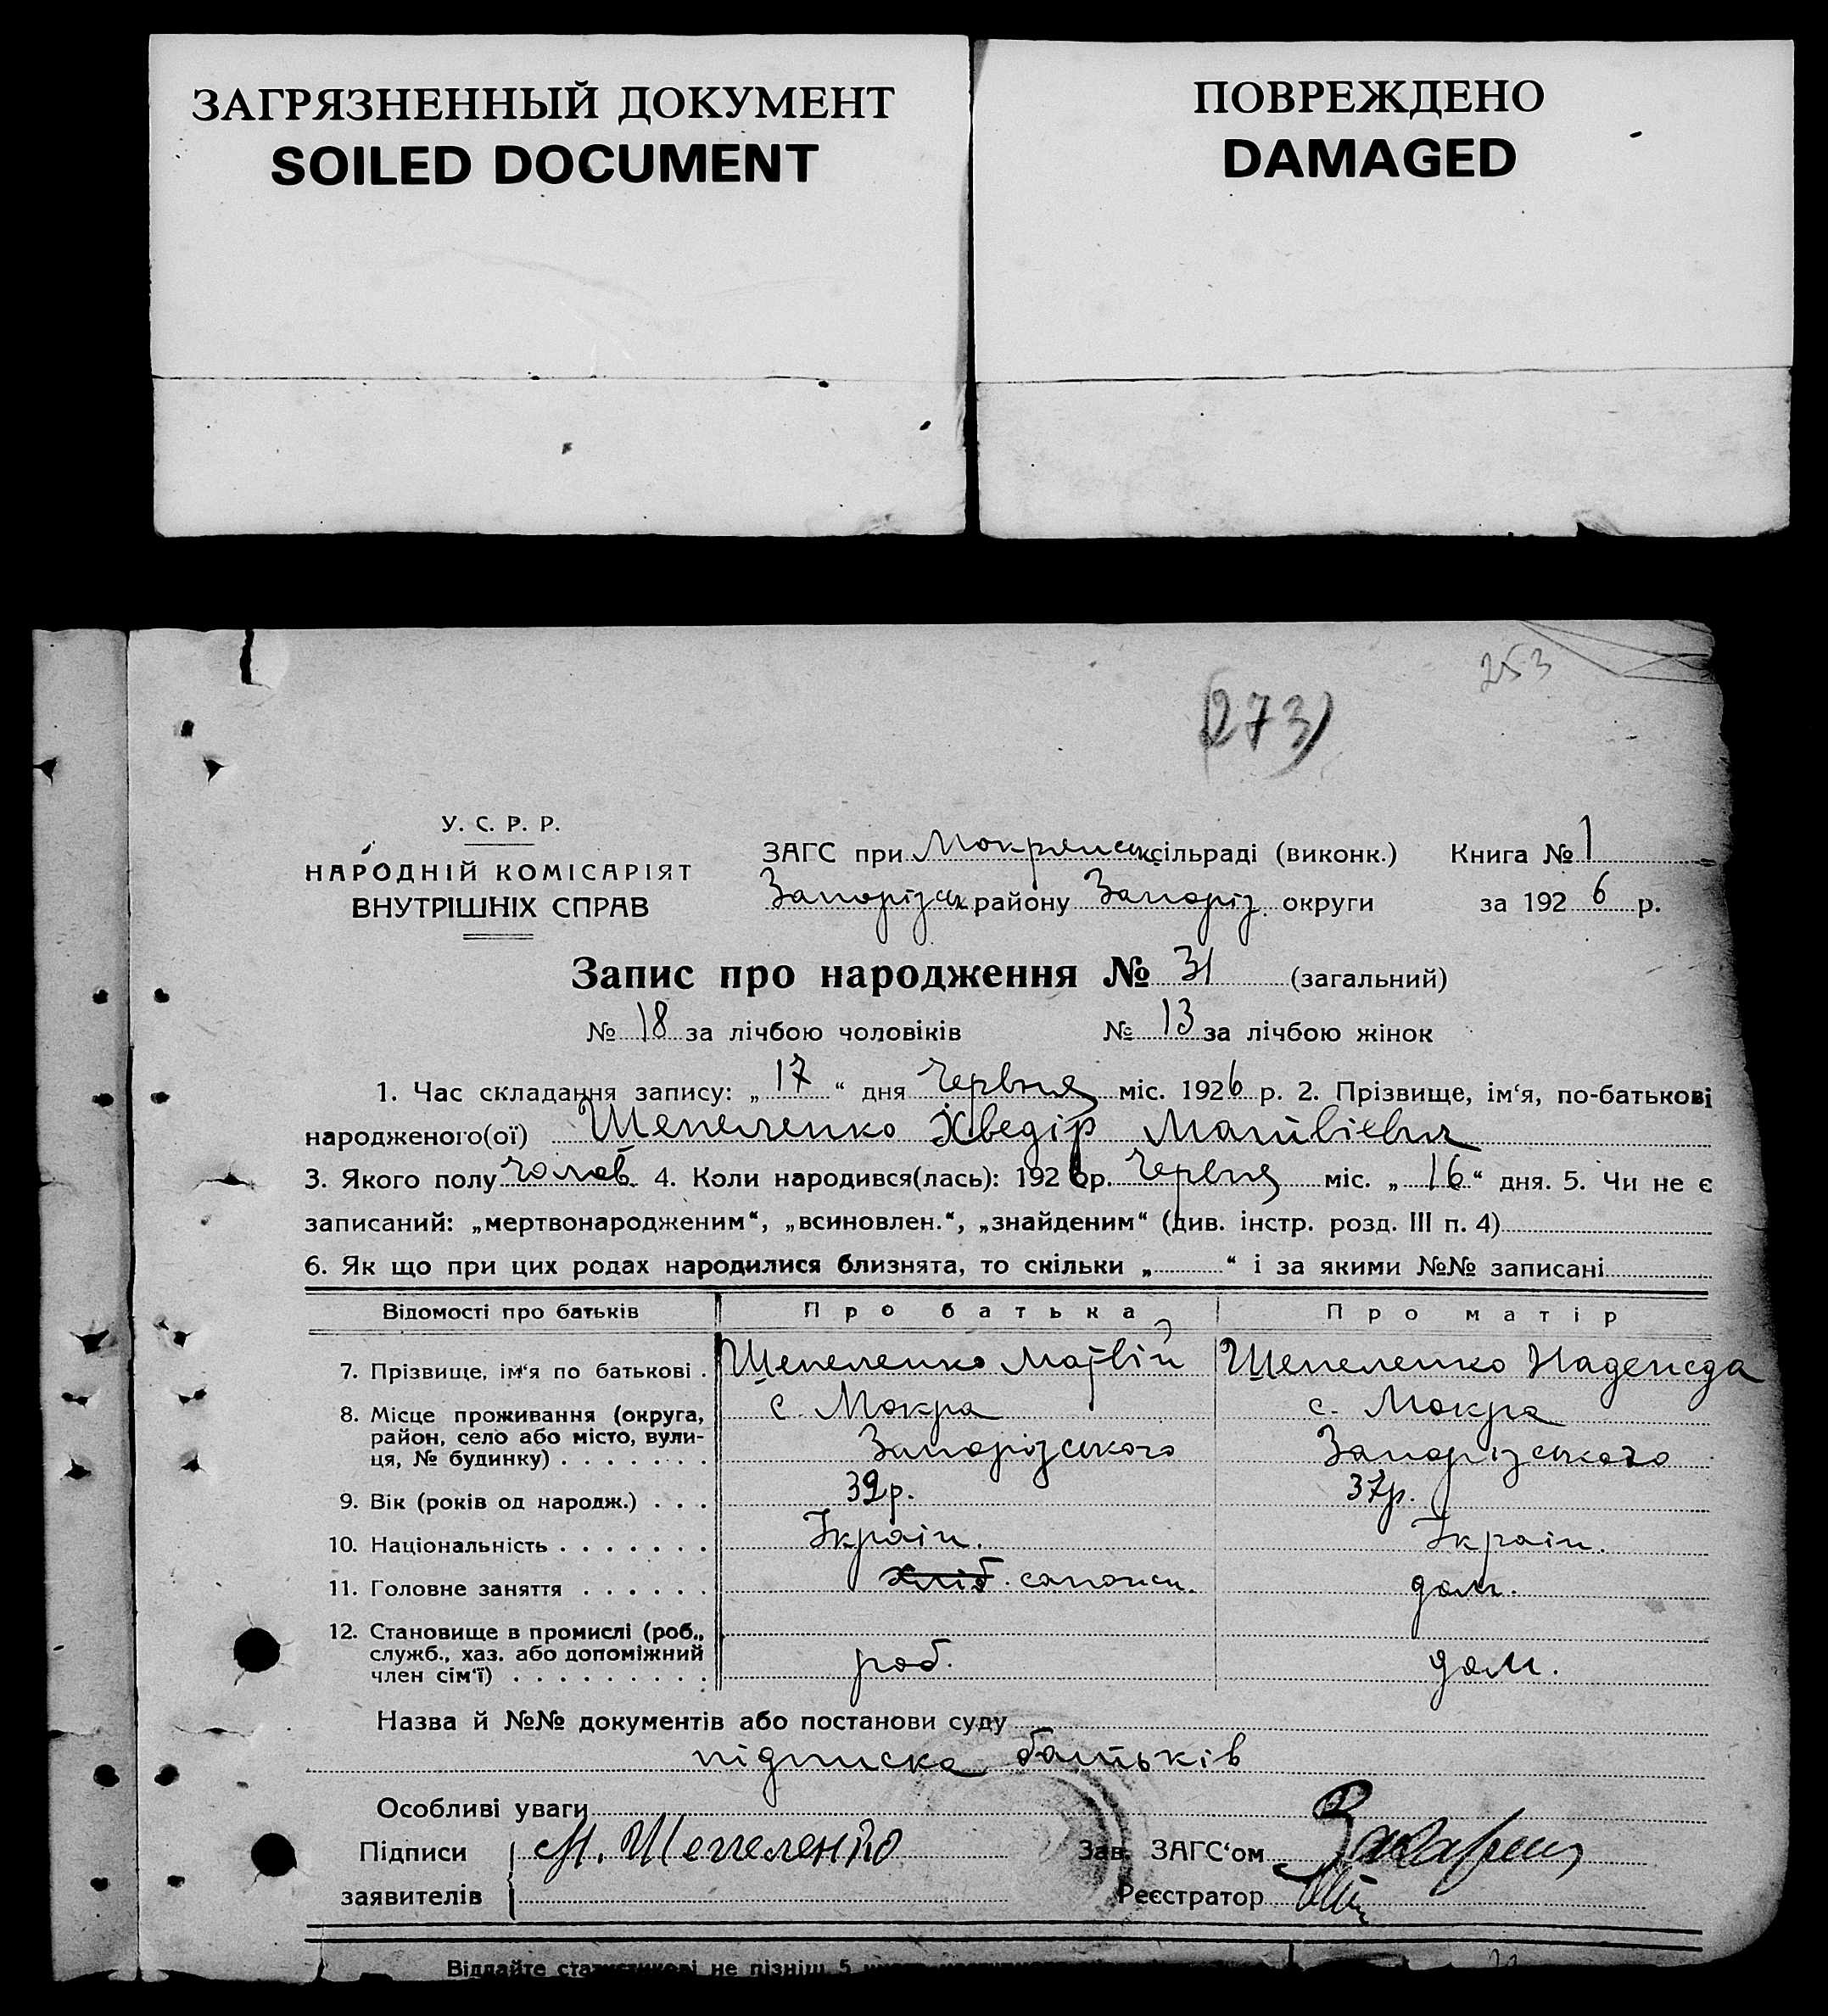 ЗАГРЯЗНЕННЫЙ ДОКУМЕНТ
SOILED DOCUMENT
ПОВРЕЖДЕНО
DAMAGED
253
(273)
У. С. Р. Р.
НАРОДНІЙ КОМІСАРІЯТ
ВНУТРІШНІХ СПРАВ
ЗАГС при Мокрянськ сільраді (виконк.) Книга № 1
Запорізськ району Запоріз. округи за 1926 р.
Запис про народження № 31 (загальний)
№ 18 за лічбою чоловіків № 13 за лічбою жінок
1. Час складання запису: „ 17 “ дня Червня міс. 1926 р. 2. Прізвище, ім‘я, по-батькові
народженого(ої) Шепеленко Хведір Матвієвич
3. Якого полу чолов. 4. Коли народився(лась): 1926 р. Червня міс. „ 16 “ дня. 5. Чи не є
записаний: „мертвонародженим“, „всиновлен.“, „знайденим“ (див. інстр. розд. III п. 4)
6. Як що при цих родах народилися близнята, то скільки „ “ і за якими №№ записані
Відомості про батьків Про батька Про матір
7. Прізвище, ім‘я по батькові . Шепеленко Матвій Шепеленко Надежда
8. Місце проживання (округа, с. Мокра с. Мокра
район, село або місто, вули-
ця, № будинку) . . . . . . . Запорізського Запорізського
9. Вік (років од народж.) . . . 39р. 37р.
10. Національність . . . . . . . Україн. Україн.
11. Головне заняття . . . . . . хліб. сапожн. дом.
12. Становище в промислі (роб.,
служб., хаз. або допоміжний
член сім‘ї) . . . . . . . . . роб. дом.
Назва й №№ документів або постанови суду
підписка батьків
Особливі уваги
Підписи М. Шепеленко Зав. ЗАГС‘ом
заявителів Реєстратор
Віддайте статистикові не пізніш 5